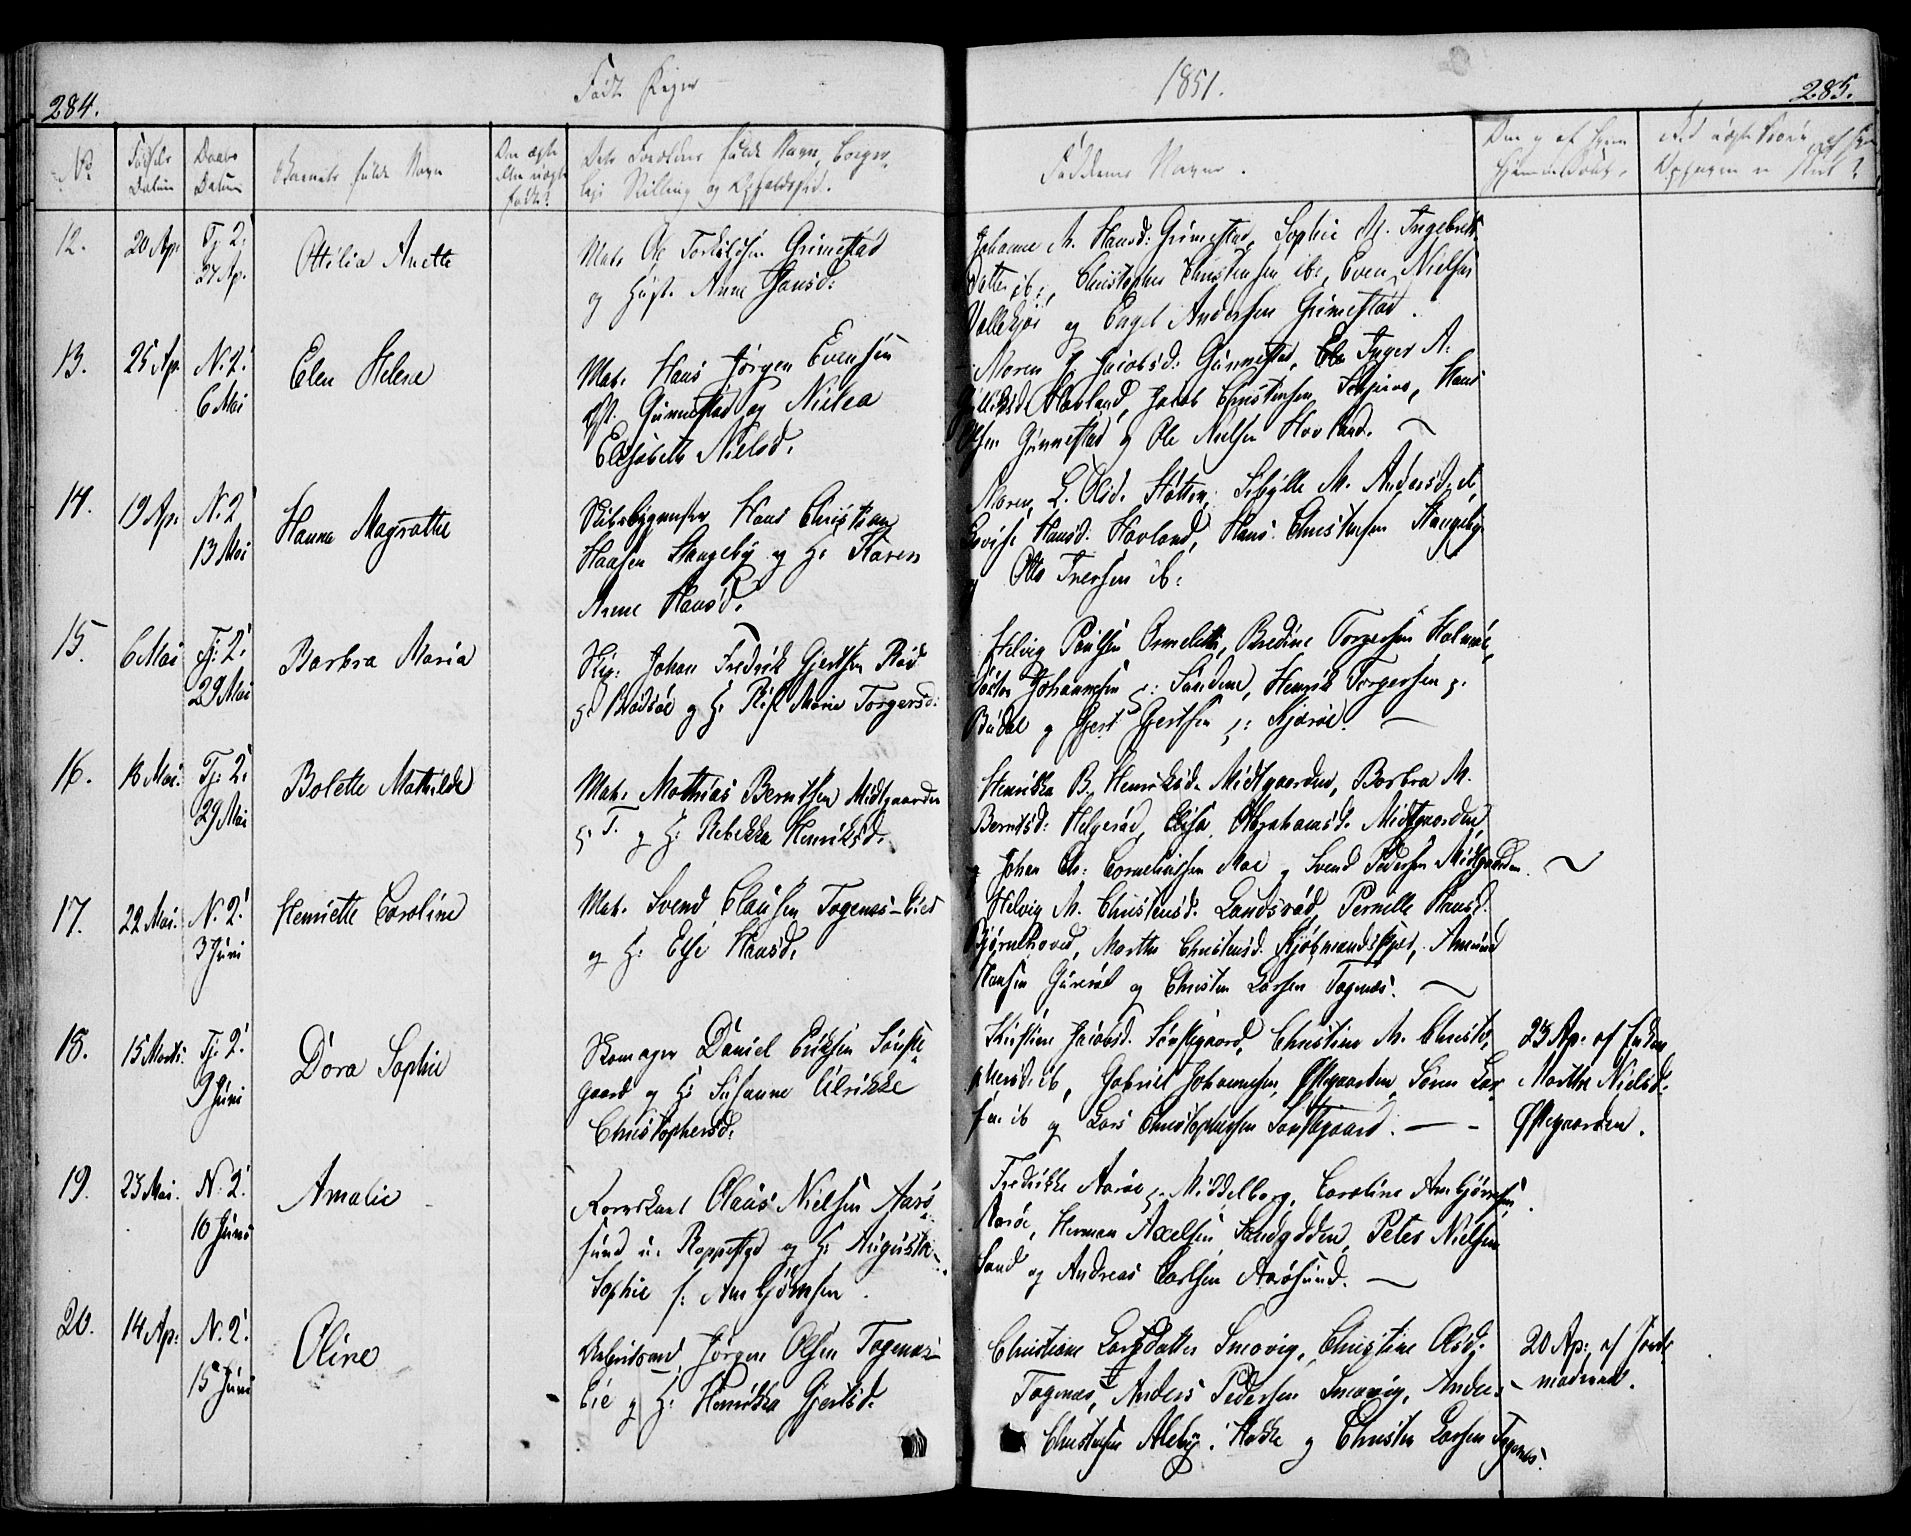 284.
Født Piger
1851.
285.
No
Fødsels Datum
Daabs Datum
Barnets fulde Navn
Om ægte eller uægte født?
Dets Forældres fulde Navn, Borger-
lige Stilling og Opholdssted.
Faddernes Navne.
12.
20 Ap:
Tj: 2:
27 Ap.
Ottilia Anette
Mat. Ole Torkildsen Grimestad
og Hust. Anne Hansd:
Johanne M. Hansd: Grimestad, Sophie M. Ingebrets-
datter ib:, Christopher Christensen ib:, Even Nielsen
Vallekjær og Engel Andersen Grimestad.
13.
25 Ap.
N. 2:
6 Mai
Elen Helene
Mat. Hans Jørgen Evensen
Gunnestad og Niclea
Elisabeth Nielsd.
Maren Jacobsd: Gunnestad, Inger A.
Hovland, Jacob Christensen, Hans
Olsen Gunnestad og Ole Nielsen Hovland.
14.
19 Ap:
N. 2
13 Mai
Hanna Magrathe
Skibsbygmester Hans Christian
Hansen Stangeby og H: Karen
Anne Hansd.
Maren L. Olsd. Holten, Sibylle M. Andersd. ib,
Lovise Hansd. Hovland, Hans Christensen Stangeby
og Otto Iversen ib:
15.
6 Mai
Tj: 2:
29 Mai
Barbra Maria
Skip: Johan Fredrik Gjertsen Rød
p: Brødsøe og H: Marie Torgersd:
Helvig Poulsen Ormelet, Bredine Torgersen Holmene,
Johannesen p: Søndene, Henrik Torgersen p:
Budal og Gjert Gjertsen p: Kjøröe.
16.
18 Mai:
Tj: 2:
29 Mai
Bolette Mathilde
Mat. Mathias Berntsen Midtgaarden
p: T. og H: Rebekka Henriksd.
Henrikka B. Henriksd. Midtgaarden, Barbra M.
Berntsd: Helgerød, Elisa Abrahamsd. Midtgaarden
og Johan Ch: Corneliussen Moe og Svend Pedersen Midtgaarden.
17.
22 Mai:
N. 2:
3 Juni
Henriette Caroline
Mat. Svend Clausen Tagenæs-Eiet
og H: Else Hansd.
Helvig M. Christensd. Landsrød, Pernille Hansd.
Bjørnehoved, Marthe Christensd. Kjøbmandskjær, Amund
Hansen Gurerød og Christen Larsen Tagenæs.
18.
15 Marts:
Tj: 2:
9 Juni
Dora Sophie
Skomager Daniel Eriksen Sønste-
gaard og H: Susanne Ulrikke
Christophersd.
Kirstine Jacobsd. Sønstegaard, Christine M. Christo-
phersd: ib, Gabriel Johannesen Østgaarden, Søren Lar-
sen ib og Lars Christophersen Sønstegaard.
23 Ap: af Enken
Marthe Nielsd:
Østegaarden.
19.
23 Mai.
N. 2:
10 Juni
Amalie
Olaus Nielsen Aarø-
sund u: Roppestad og H: Augusta
Sophie f: Arnbjørnsen.
Fredrikke Aarøe p. Middelborg, Caroline Arnbjørnsen
Aarøe, Herman Axelsen Sandgodden, Peter Nielsen
Sand og Andreas Carlsen Aarøsund.
20.
14 Ap:
N. 2:
15 Juni
Oline
Jørgen Olsen Tagenæs-
Eie og H: Henrikka Gjertsd.
Christiane Larsdatter Snovig, Christine Olsd.
Tagenæs, Anders Pedersen Snovig, Anders
Christensen Aleby i Stokke og Christen Larsen Tagenæs.
20 Ap: af Jorde-
moderen.